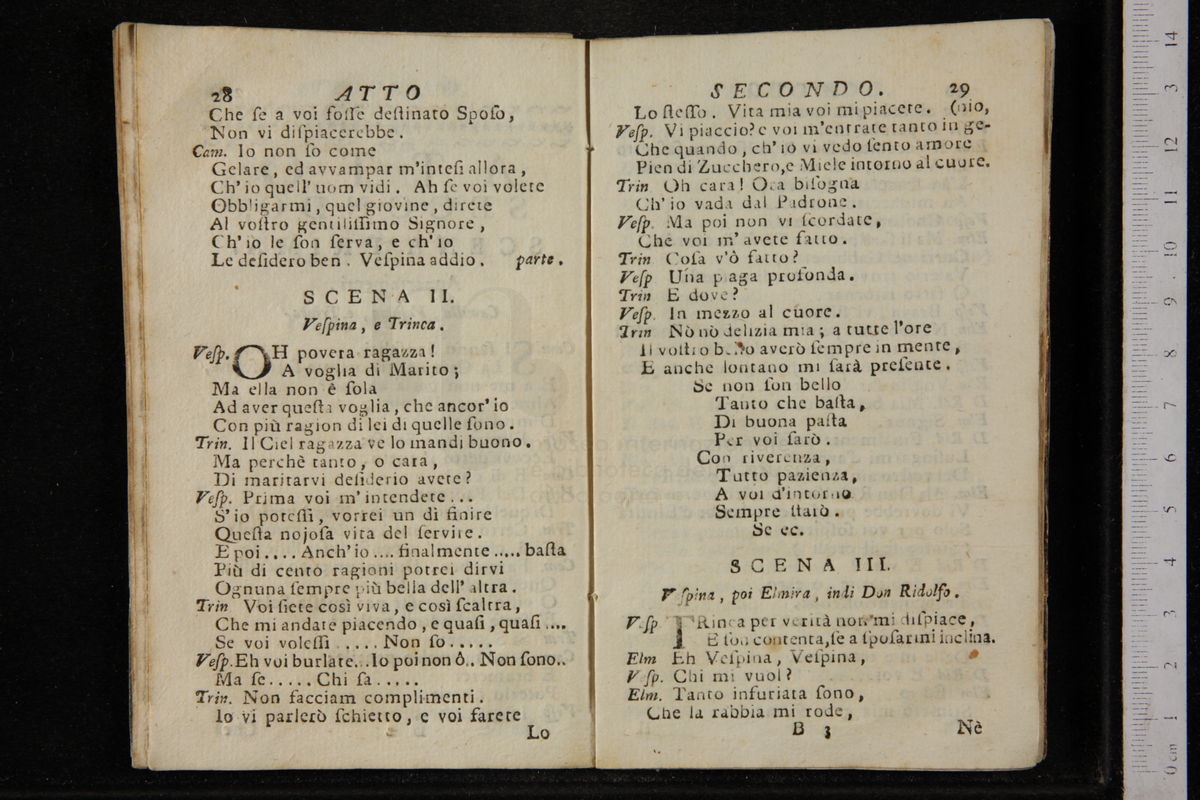 28 ATTO
Che ſe a voi foſſe deſtinato Spoſo,
Non vi diſpiacerebbe.
Cam. Io non ſo come
Gelare, ed avvampar m'inteſi allora,
Ch'io quell'uom vidi. Ah ſe voi volete
Obbligarmi, quel giovine, direte
Al voſtro gentiliſſimo Signore,
Ch'io le ſon ſerva, e ch'io
Le deſidero ben. Veſpina addio. parte.
SCENA II.
Veſpina, e Trinca.
Veſp. OH povera ragazza!
A voglia di Marito;
Ma ella non è ſola
Ad aver queſta voglia, che ancor'io
Con più ragion di lei di quelle ſono.
Trin. Il Ciel ragazza ve lo mandi buono.
Ma perchè tanto, o cara,
Di maritarvi deſiderio avete?
Veſp. Prima voi m'intendete...
S'io poteſſi, vorrei un di finire
Queſta nojoſa vita del ſervire.
E poi.... Anch'io.... finalmente..... baſta
Più di cento ragioni potrei dirvi
Ognuna ſempre più bella dell'altra.
Trin Voi ſiete così viva, e così ſcaltra,
Che mi andate piacendo, e quaſi, quaſi....
Se voi voleſſi..... Non ſo.....
Veſp. Eh voi burlate... Io poi non ô.. Non ſono..
Ma ſe..... Chi ſa.....
Trin. Non facciam complimenti.
Io vi parlerò ſchietto, e voi farete
Lo
SECONDO. 29
Lo ſteſſo. Vita mia voi mi piacete. (nio,
Veſp. Vi piaccio? e voi m'entrate tanto in ge-
Che quando, ch'io vi vedo ſento amore
Pien di Zucchero, e Miele intorno al cuore.
Trin Oh cara! Ora biſogna
Ch'io vada dal Padrone.
Veſp. Ma poi non vi ſcordate,
Che voi m'avete fatto.
Trin Coſa v'ò fatto?
Veſp Una piaga profonda.
Trin E dove?
Veſp. In mezzo al cuore.
Trin Nò nò delizia mia; a tutte l'ore
Il voſtro bello averò ſempre in mente,
E anche lontano mi ſarà preſente.
Se non ſon bello
Tanto che baſta,
Di buona paſta
Per voi ſarò.
Con riverenza,
Tutto pazienza,
A voi d'intorno
Sempre ſtarò.
Se ec.
SCENA III.
Veſpina, poi Elmira, indi Don Ridolfo.
Veſp TRinca per verità non mi diſpiace,
E ſon contenta, ſe a ſpoſarmi inclina.
Elm Eh Veſpina, Veſpina,
Veſp. Chi mi vuol?
Elm. Tanto infuriata ſono,
Che la rabbia mi rode,
B 3 Nè